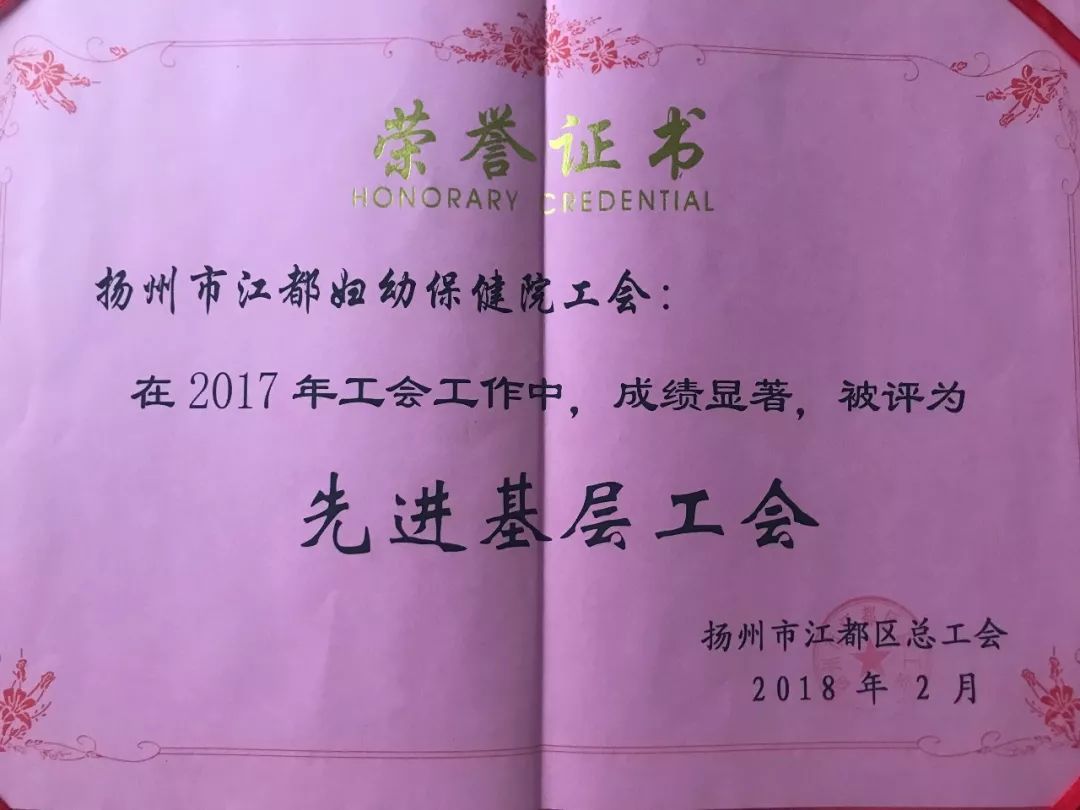 荣誉证书
HONORARY CREDENTIAL
扬州市江都妇幼保健院工会：
在2017年工会工作中，成绩显著，被评为
先进基层工会
扬州市江都区总工会
2018年2月